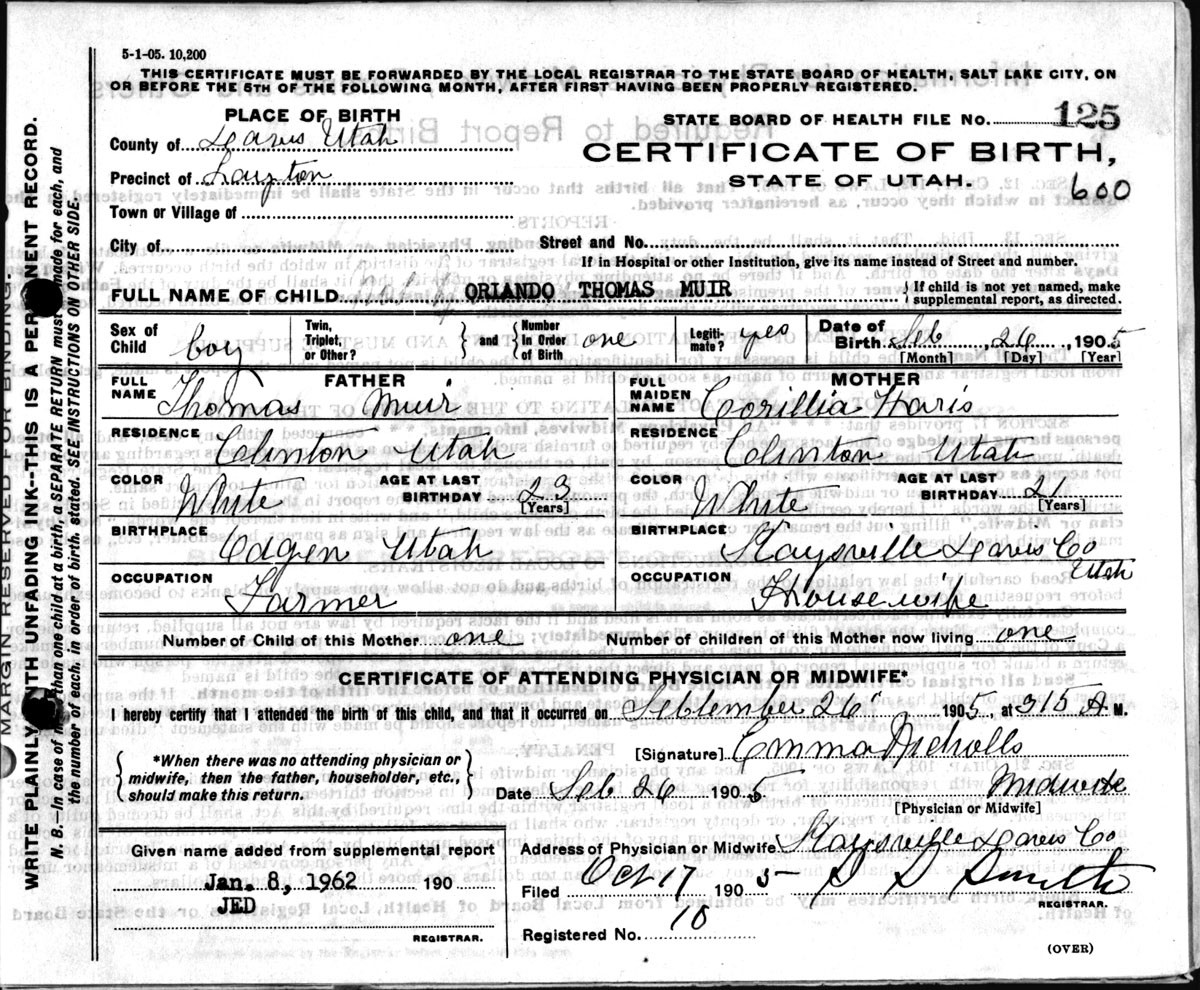 5-1-05. 10,200
THIS CERTIFICATE MUST BE FORWARDED BY THE LOCAL REGISTRAR TO THE STATE BOARD OF HEALTH, SALT LAKE CITY, ON
OR BEFORE THE 5TH OF THE FOLLOWING MONTH, AFTER FIRST HAVING BEEN PROPERLY REGISTERED.
PLACE OF BIRTH
STATE BOARD OF HEALTH FILE No. 125
County of Davis Utah
CERTIFICATE OF BIRTH,
Precinct of Layton
STATE OF UTAH.
600
Town or Village of
City of Street and No.
If in Hospital or other Institution, give its name instead of Street and number.
FULL NAME OF CHILD ORLANDO THOMAS MUIR { If child is not yet named, make supplemental report, as directed.
Sex of Child boy Twin, Triplet, or Other? } and { Number In Order of Birth one Legiti- mate? yes Date of Birth Seb 26 1905
[Month] [Day] [Year]
FATHER MOTHER
FULL NAME Thomas Muir FULL MAIDEN NAME Corillia Haris
RESIDENCE Clinton Utah RESIDENCE Clinton Utah
COLOR White AGE AT LAST BIRTHDAY 23 [Years] COLOR White AGE AT LAST BIRTHDAY 21 [Years]
BIRTHPLACE Odgen Utah BIRTHPLACE Kaysville Davis Co Utah
OCCUPATION Farmer OCCUPATION Housewife
Number of Child of this Mother one Number of children of this Mother now living one
CERTIFICATE OF ATTENDING PHYSICIAN OR MIDWIFE*
I hereby certify that I attended the birth of this child, and that it occurred on Sebtember 26 1905, at 315 A M.
[Signature] Emma Nicholls
*When there was no attending physician or midwife, then the father, householder, etc., should make this return.
Date Seb 26 1905 Midwife
[Physician or Midwife]
Given name added from supplemental report
Address of Physician or Midwife Kaysville Davis Co
Jan. 8, 1962 190
Filed Oct 17 1905 D D Smith
JED
REGISTRAR.
REGISTRAR.
Registered No. 10
(OVER)
MARGIN RESERVED FOR BINDING.
WRITE PLAINLY WITH UNFADING INK--THIS IS A PERMANENT RECORD.
N. B.—In case of more than one child at a birth, a SEPARATE RETURN must be made for each, and
the number of each, in order of birth, stated. SEE INSTRUCTIONS ON OTHER SIDE.